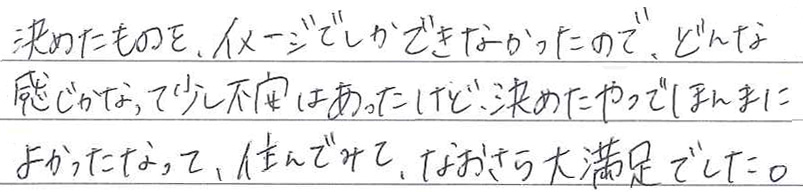 決めたものを、イメージでしかできなかったので、どんな
感じかなって少し不安はあったけど、決めたやつでほんまに
よかったなって、住んでみて、なおさら大満足でした。